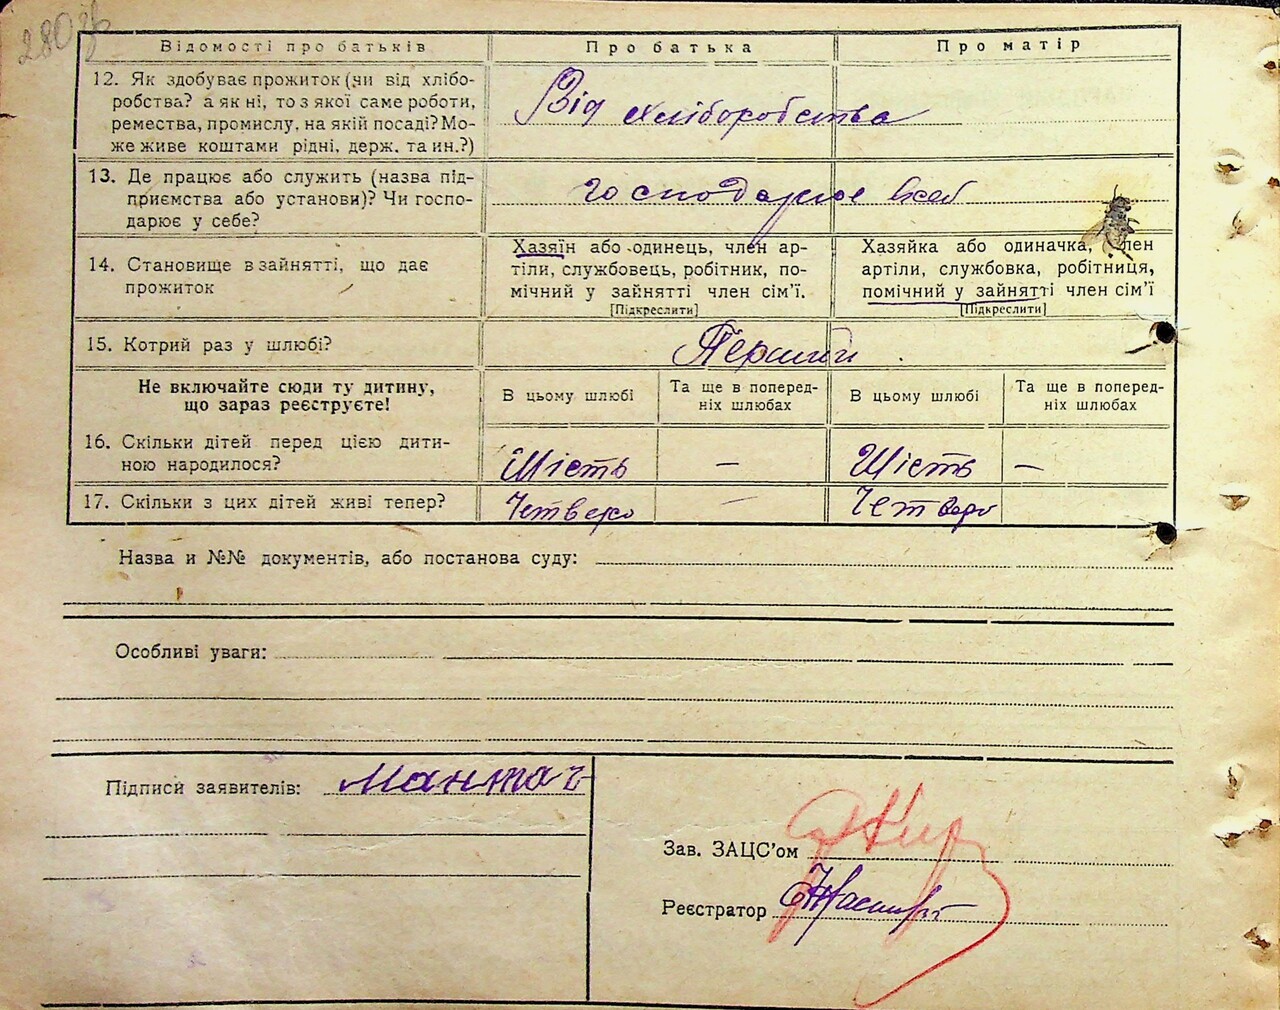 280 зв
Відомості про батьків Про батька Про матір
12. Як здобуває прожиток (чи від хлібо-
робства? а як ні, то з якої саме роботи,
ремества, промислу, на якій посаді? Мо-
же живе коштами рідні, держ. та ин.?)
Від хліборобства
13. Де працює або служить (назва під-
приємства або установи)? Чи госпо-
дарює у себе?
господарює в себ
14. Становище в зайнятті, що дає
прожиток
Хазяїн або одинець, член ар-
тіли, службовець, робітник, по-
мічний у зайнятті член сім'ї.
[Підкреслити]
Хазяйка або одиначка, член
артіли, службовка, робітниця,
помічний у зайнятті член сім'ї
[Підкреслити]
15. Котрий раз у шлюбі?
Перший
Не включайте сюди ту дитину,
що зараз реєструєте!
В цьому шлюбі
Та ще в поперед-
ніх шлюбах
В цьому шлюбі
Та ще в поперед-
ніх шлюбах
16. Скільки дітей перед цією дити-
ною народилося?
Шість — Шість —
17. Скільки з цих дітей живі тепер?
Четверо — Четверо
Назва и №№ документів, або постанова суду:
Особливі уваги:
Підписи заявителів: Мантач
Зав. ЗАЦС'ом
Реєстратор